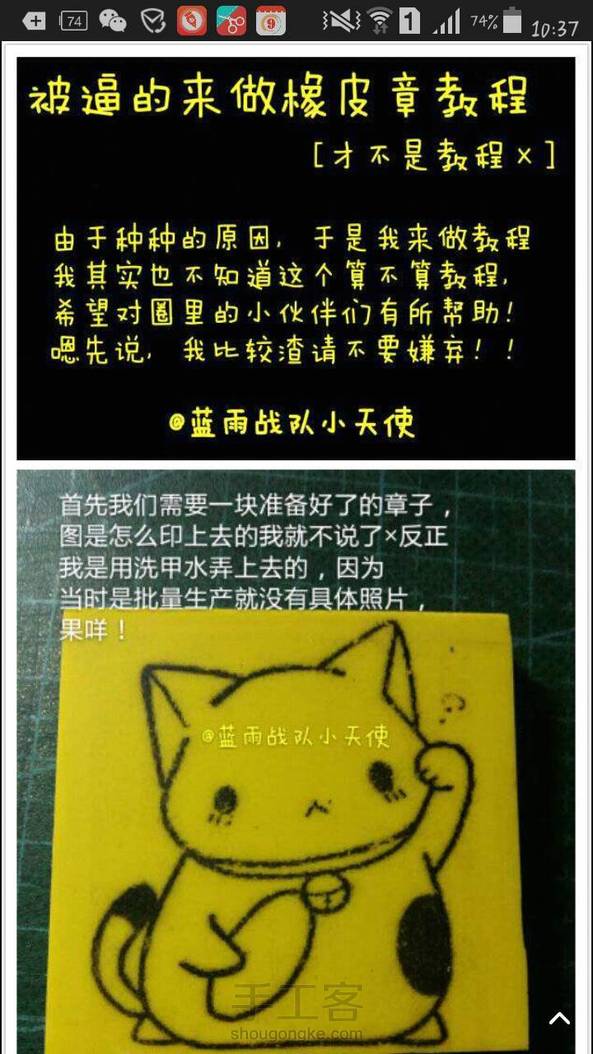 74
1
74%
10:37
被逼的来做橡皮章教程
[才不是教程×]
由于种种的原因,于是我来做教程
我其实也不知道这个算不算教程,
希望对圈里的小伙伴们有所帮助!
嗯先说,我比较渣请不要嫌弃!!
@蓝雨战队小天使
首先我们需要一块准备好了的章子,
图是怎么印上去的我就不说了×反正
我是用洗甲水弄上去的,因为
当时是批量生产就没有具体照片,
果咩!
@蓝雨战队小天使
手工客
shougongke.com